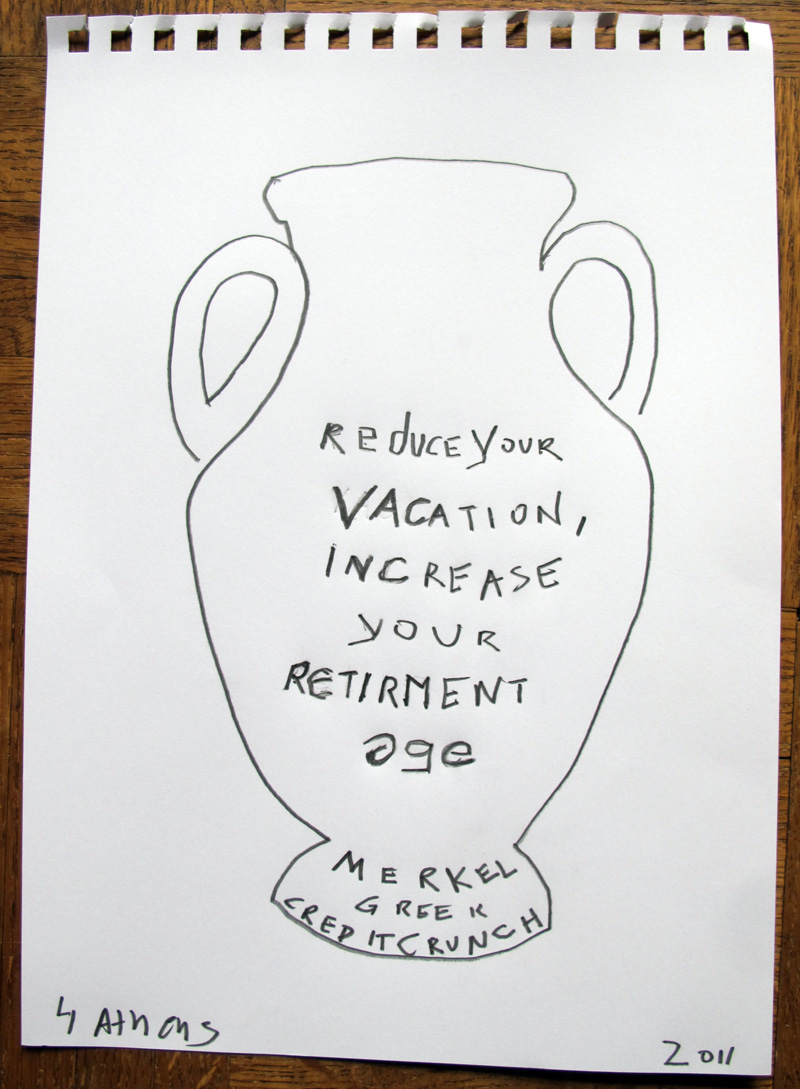 REDUCE YOUR
VACATION,
INCREASE
YOUR
RETIRMENT
age
MERKEL
GREEK
CREDITCRUNCH
4 Athens
2011